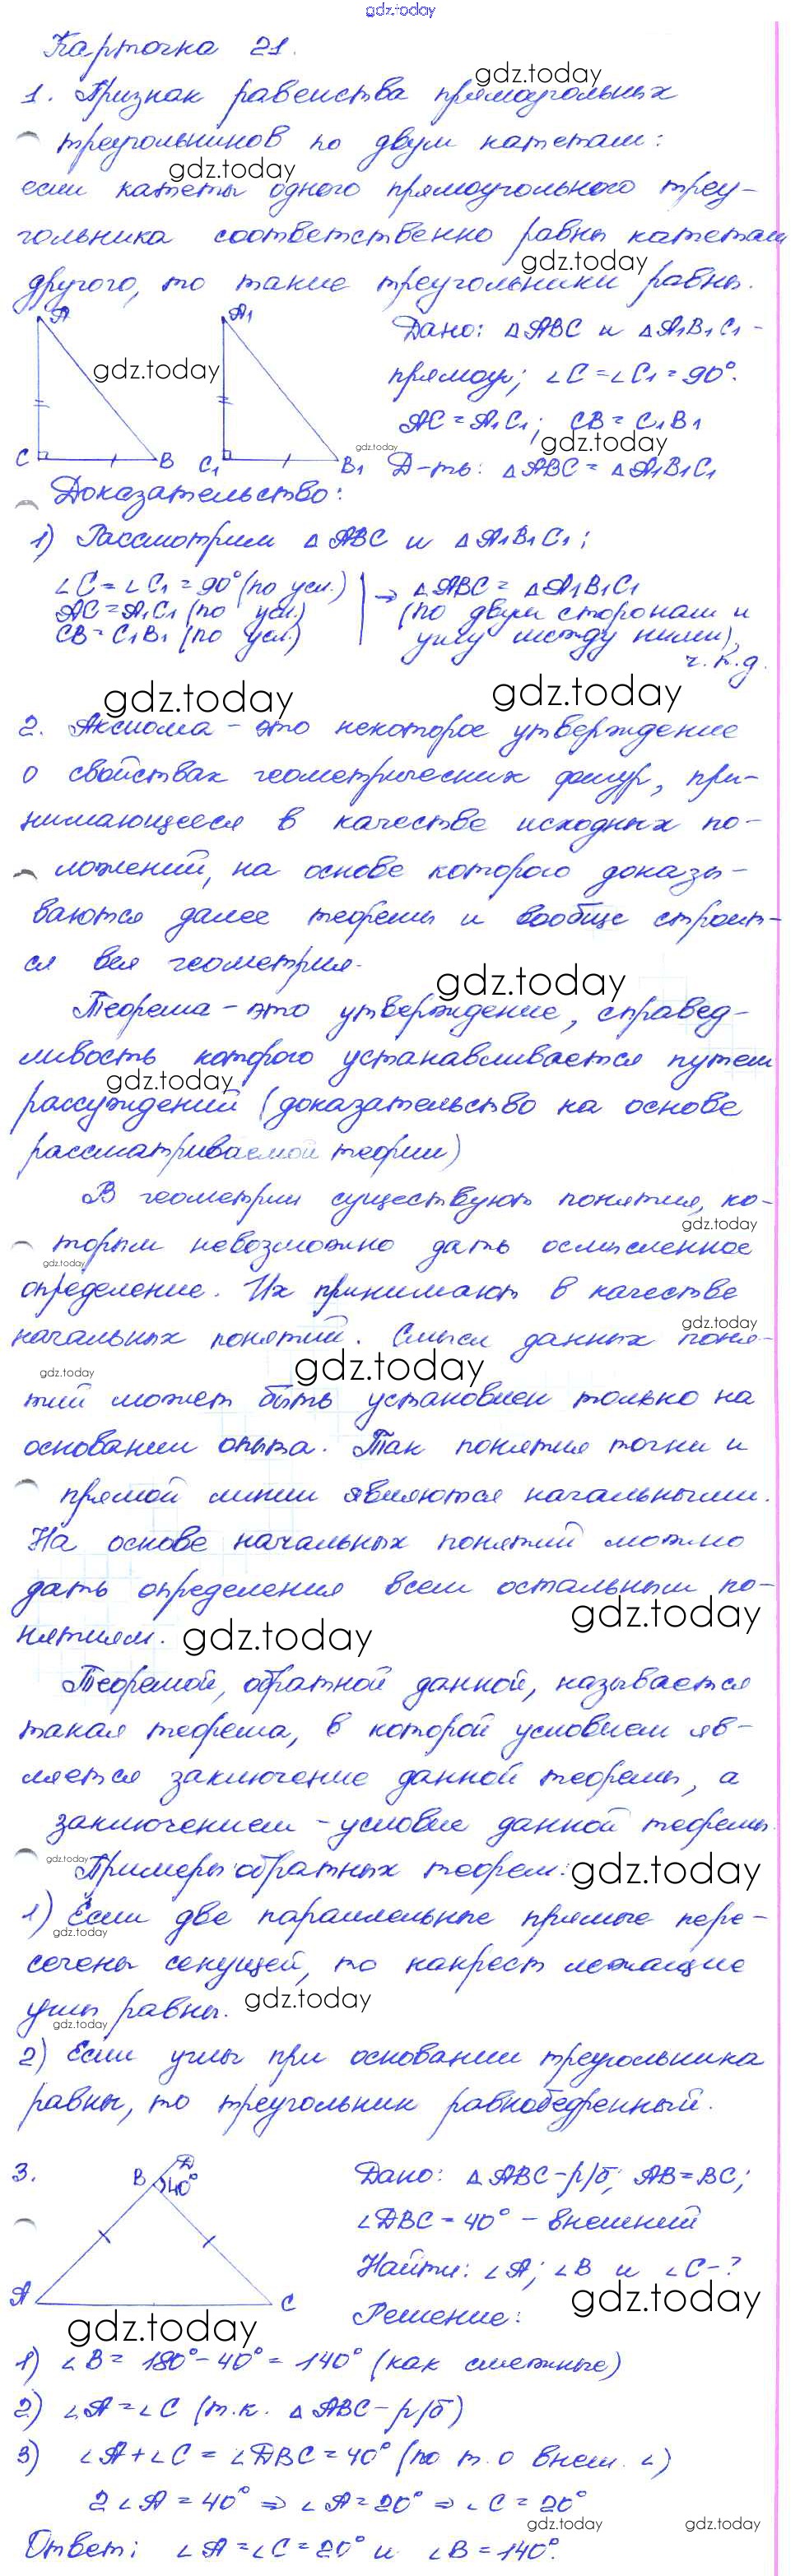 gdz.today
Карточка 21.
gdz.today
1. Признак равенства прямоугольных
треугольников по двум катетам:
gdz.today
если катеты одного прямоугольного треу-
гольника соответственно равны катетам
gdz.today
другого, то такие треугольники равны.
A A₁ Дано: △ABC и △A₁B₁C₁ -
gdz.today
прямоуг; ∠C = ∠C₁ = 90°.
AC = A₁C₁; CB = C₁B₁
gdz.today gdz.today
C B C₁ B₁ Д-ть: △ABC = △A₁B₁C₁
Доказательство:
1) Рассмотрим △ABC и △A₁B₁C₁;
∠C = ∠C₁ = 90° (по усл.) → △ABC = △A₁B₁C₁
AC = A₁C₁ (по усл.) (по двум сторонам и
CB = C₁B₁ (по усл.) углу между ними),
ч.т.д.
gdz.today gdz.today
2. Аксиома - это некоторое утверждение
о свойствах геометрических фигур, при-
нимающееся в качестве исходных по-
ложений, на основе которого доказы-
ваются далее теоремы и вообще строит-
ся вся геометрия.
gdz.today
Теорема - это утверждение, справед-
ливость которого устанавливается путем
gdz.today
рассуждений (доказательство на основе
рассматриваемой теории)
В геометрии существуют понятия, ко-
gdz.today
торым невозможно дать осмысленное
gdz.today
определение. Их принимают в качестве
gdz.today
начальных понятий. Смысл данных поня-
gdz.today gdz.today
тий может быть установлен только на
основании опыта. Так понятия точки и
прямой линии являются начальными.
На основе начальных понятий можно
дать определения всем остальным по-
gdz.today
нятиям. gdz.today
Теоремой, обратной данной, называется
такая теорема, в которой условием яв-
ляется заключение данной теоремы, а
заключением - условие данной теоремы.
gdz.today Примеры обратных теорем: gdz.today
1) Если две параллельные прямые пере-
gdz.today
сечены секущей, то накрест лежащие
углы равны. gdz.today
gdz.today
2) Если углы при основании треугольника
равны, то треугольник равнобедренный.
3. B D 40° Дано: △ABC - р/б; AB = BC;
∠DBC = 40° - внешний
Найти: ∠A; ∠B и ∠C - ?
A C gdz.today
gdz.today Решение:
1) ∠B = 180° - 40° = 140° (как смежные)
2) ∠A = ∠C (т.к. △ABC - р/б)
3) ∠A + ∠C = ∠DBC = 40° (по т. о внеш. ∠)
2∠A = 40° ⇒ ∠A = 20° ⇒ ∠C = 20°
gdz.today gdz.today
Ответ: ∠A = ∠C = 20° и ∠B = 140°.